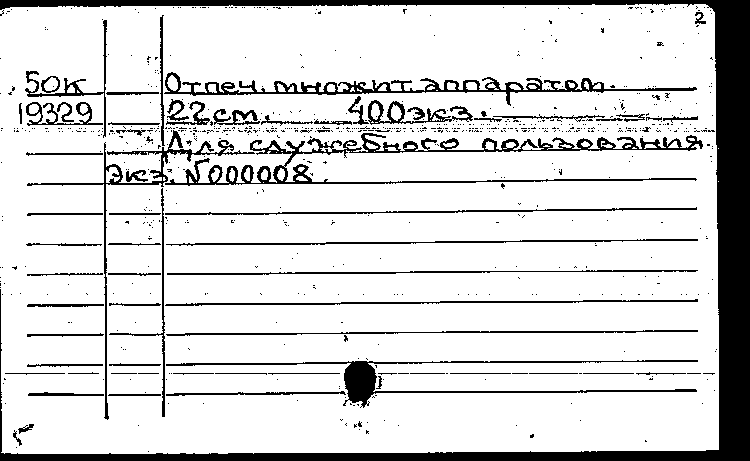 2
50К Отпеч. множит. аппаратом.
19329 22 см. 400 экз.
Для служебного пользования
Экз. №000008.